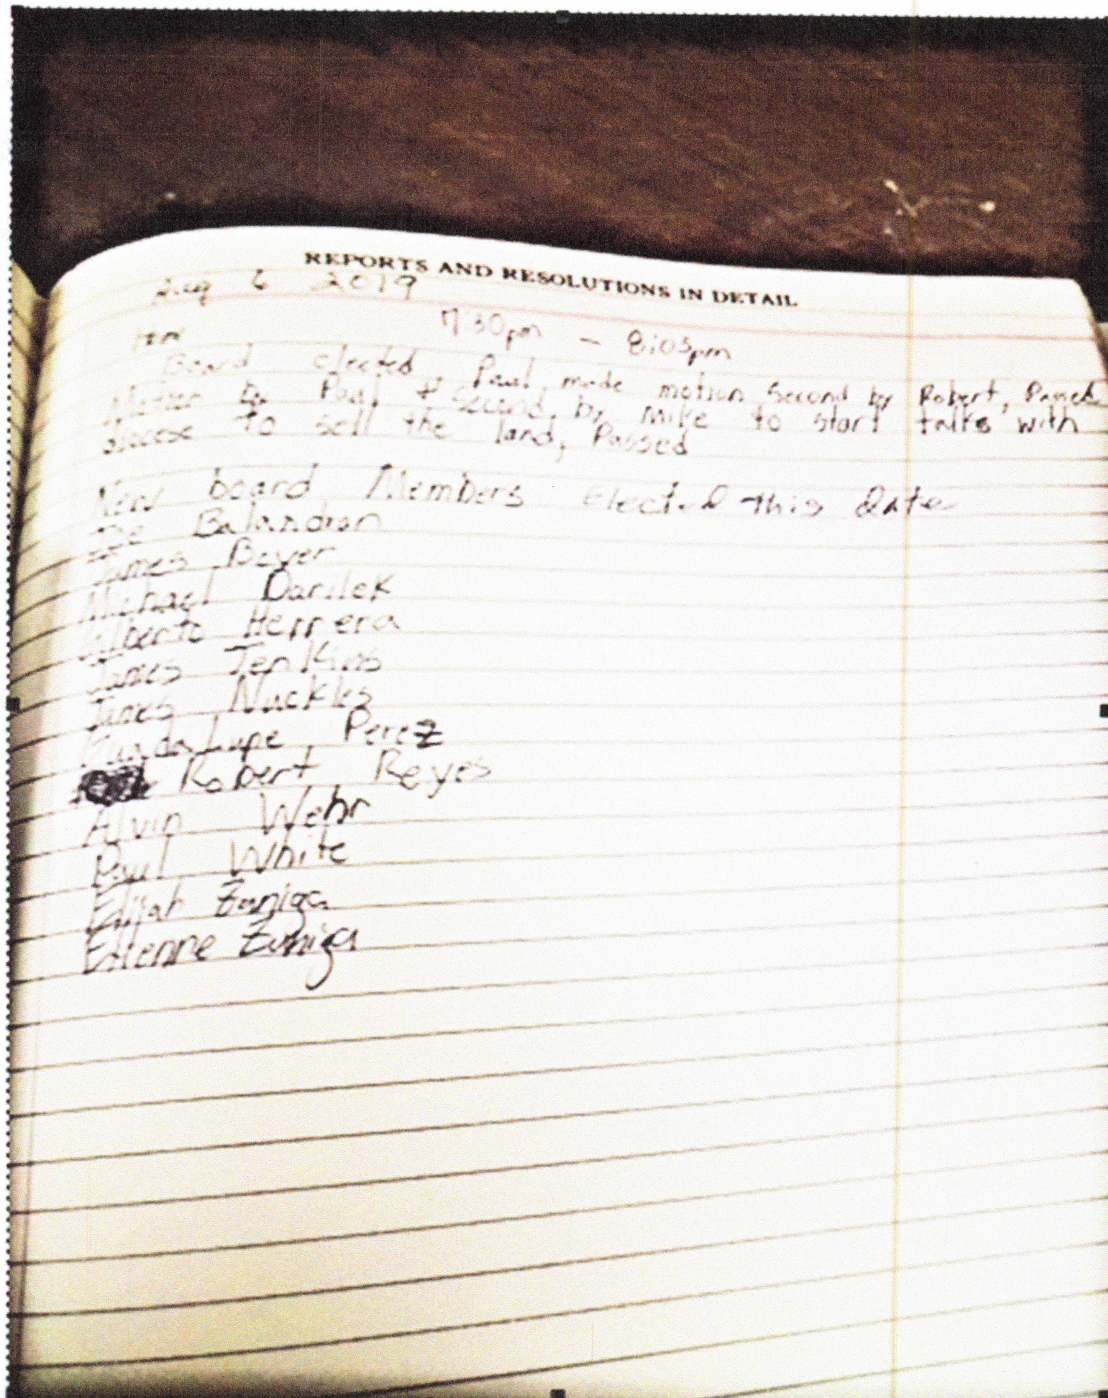 REPORTS AND RESOLUTIONS IN DETAIL
Aug 6 2019
7:30pm - 8:05pm
Board elected, Paul made motion second by Robert, Passed
Motion by Paul & second by Mike to start talks with
diocese to sell the land, Passed
New board Members Elected this date
Balandran
James Boyer
Michael Darilek
Gilberto Herrera
James Jenkins
James Nuckles
Guadalupe Perez
Robert Reyes
Alvin Wehr
Paul White
Elijah Zuniga
Etienne Zuniga